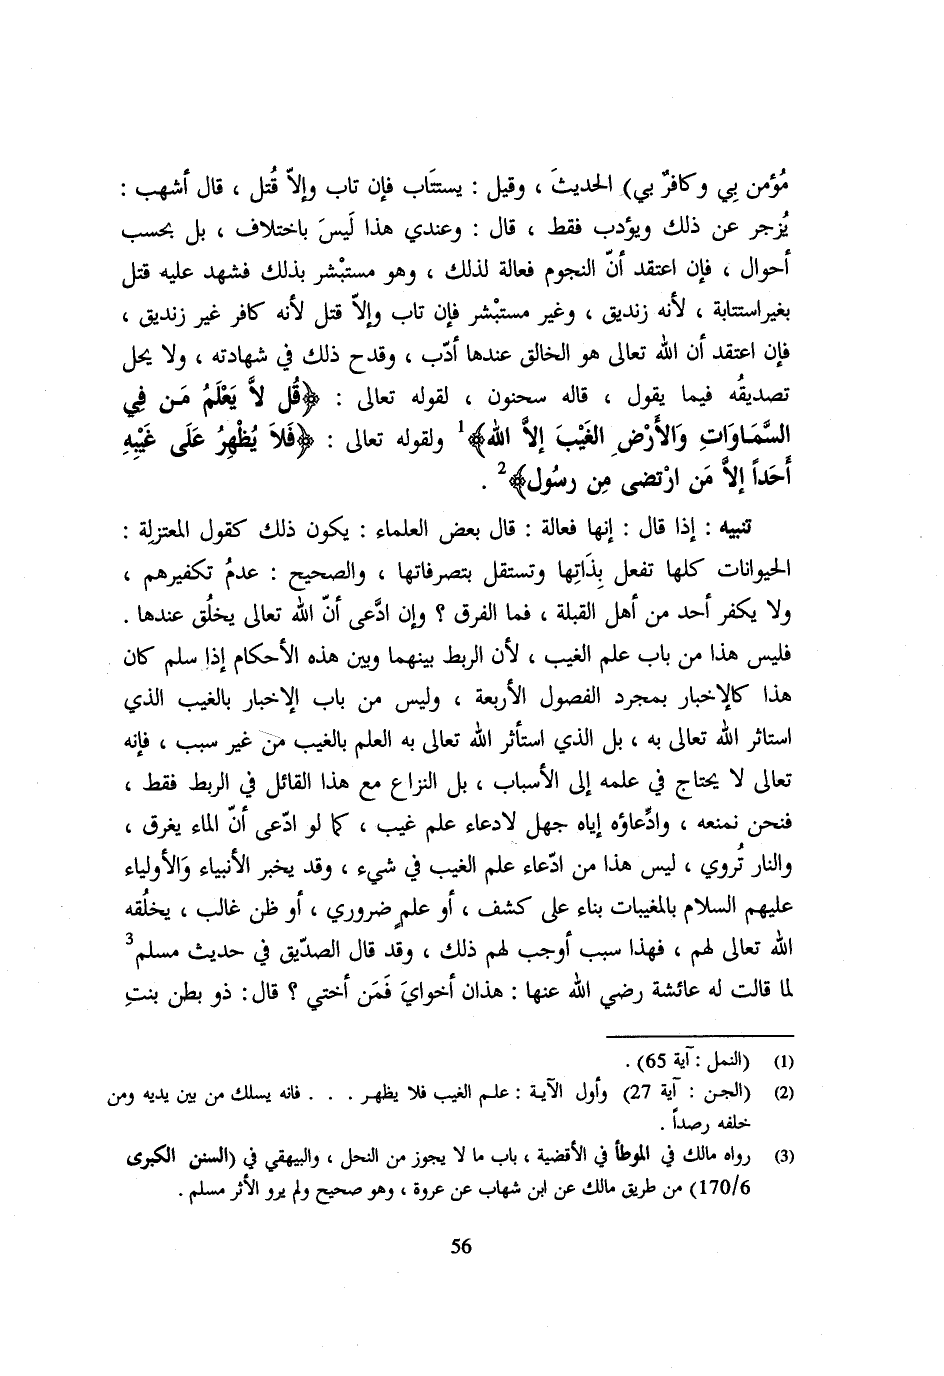 مُؤمن بِي وكافرٌ بي) الحديثَ ، وقيل : يستتَاب فإن تاب وإلاّ قُتل ، قال أشهب :
يُزجر عن ذلك ويؤدب فقط ، قال : وعندي هذا لَيسَ باختلاف ، بل بحسب
أحوال ، فإن اعتقد أنّ النجوم فعالة لذلك ، وهو مستبْشر بذلك فشهد عليه قتل
بغيراستتابة ، لأنه زنديق ، وغير مستبْشر فإن تاب وإلاّ قتل لأنه كافر غير زنديق ،
فإن اعتقد أن الله تعالى هو الخالق عندها أدّب ، وقدح ذلك في شهادته ، ولا يحل
تصديقُه فيما يقول ، قاله سحنون ، لقوله تعالى : ﴿قُل لاَّ يَعْلَمُ مَـن فِي
السَّمَـاوَاتِ وَالأَرْضِ الغَيْبَ إلاَّ الله﴾1 ولقوله تعالى : ﴿فَلاَ يُظْهِرُ عَلَى غَيْبِهِ
أَحَداً إلاَّ مَن ارْتضى مِن رسُول﴾2 .
تنبيه : إذا قال : إنها فعالة : قال بعض العلماء : يكون ذلك كقول المعتزلِة :
الحيوانات كلها تفعل بِذَاتِها وتستقل بتصرفاتها ، والصحيح : عدمُ تكفيرهم ،
ولا يكفر أحد من أهل القبلة ، فما الفرق ؟ وإن ادَّعى أنّ الله تعالى يخلُق عندها .
فليس هذا من باب علم الغيب ، لأن الربط بينهما وبين هذه الأحكام إذا سلم كان
هذا كالإخبار بمجرد الفصول الأربعة ، وليس من باب الإخبار بالغيب الذي
استاثر الله تعالى به ، بل الذي استأثر الله تعالى به العلم بالغيب من غير سبب ، فإنه
تعالى لا يحتاج في علمه إلى الأسباب ، بل النزاع مع هذا القائل في الربط فقط ،
فنحن نمنعه ، وادِّعاؤه إياه جهل لادعاء علم غيب ، كما لو ادّعى أنّ الماء يغرق ،
والنار تُروي ، ليس هذا من ادّعاء علم الغيب في شيء ، وقد يخبر الأنبياء وَالأولياء
عليهم السلام بالمغيبات بناء على كشف ، أو علمٍ ضروري ، أو ظن غالب ، يخلُقه
الله تعالى لهم ، فهذا سبب أوجب لهم ذلك ، وقد قال الصدّيق في حديث مسلم3
لما قالت له عائشة رضي الله عنها : هذان أخوايَ فَمَن أختي ؟ قال : ذو بطن بنتِ
(1) (النمل : آية 65) .
(2) (الجـن : آية 27) وأول الآيـة : علـم الغيب فلا يظهـر . . . فانه يسلك من بين يديه ومن
خلفه رصداً .
(3) رواه مالك في الموطأ في الأقضية ، باب ما لا يجوز من النحل ، والبيهقي في (السنن الكبرى
170/6) من طريق مالك عن ابن شهاب عن عروة ، وهو صحيح ولم يرو الأثر مسلم .
56